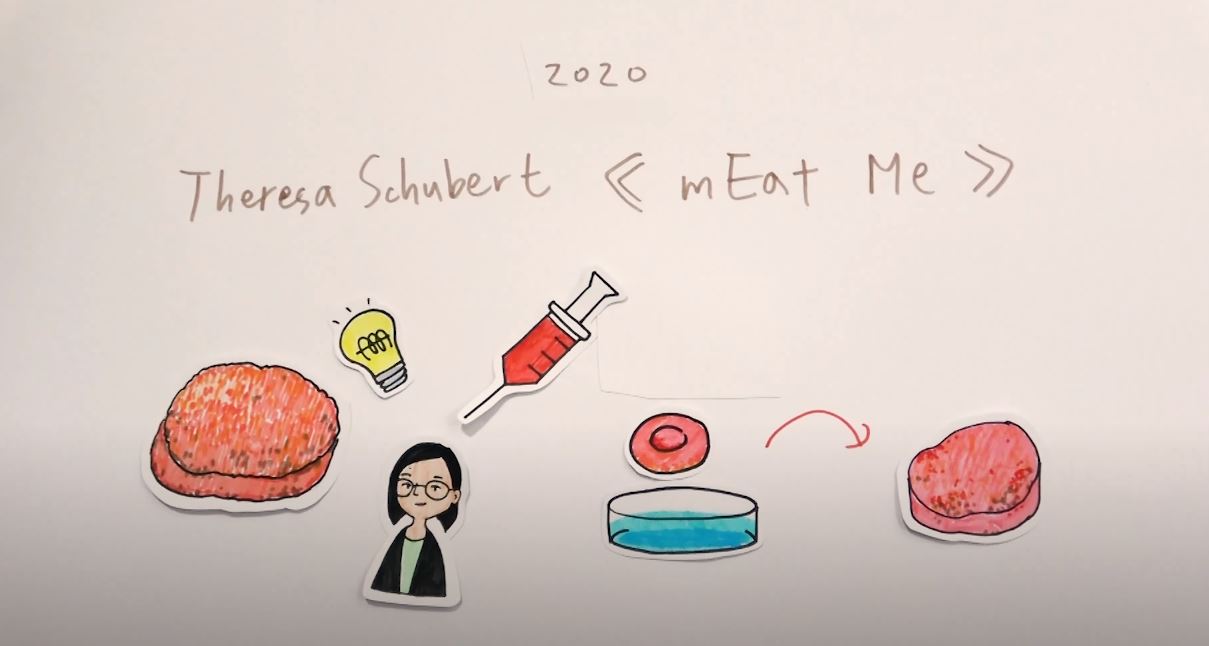 2020
Theresa Schubert 《 mEat Me 》